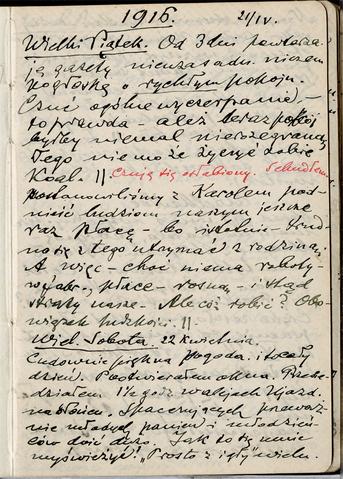 1916. 21/IV.
Wielki Piątek. Od 3 dni powtarza-
ją gazety nieuzasadn. niczem
pogłoskę o rychłym pokoju.
Czuć ogólne wyczerpanie –
to prawda – ależ teraz pokój
byłby niemal nierozegraną
Tego nie może życzyć sobie
Koal. || Czuję się osłabiony. Schudłem
Postanowiliśmy z Karolem pod-
nieść ludziom naszym jeszcze
raz płacę – bo istotnie trud-
no się z tego utrzymać z rodzinami.
A więc – choć niema roboty –
płace rosną – i stąd
straty nasze. Ale cóż robić? Obo-
wiązek ludzkości. ||
Wiel. Sobota. 22 kwietnia.
Cudownie piękna pogoda i to cały
dzień. Pootwierałem okna. Prze-
działem 1½ godz w alejach Ujazd.
na słońcu. Spacerujących przeważ-
nie młodych panien i młodzień-
ców dość dużo. Jak to się umie
wyświeżyć! „Prosto z igły" wielu.